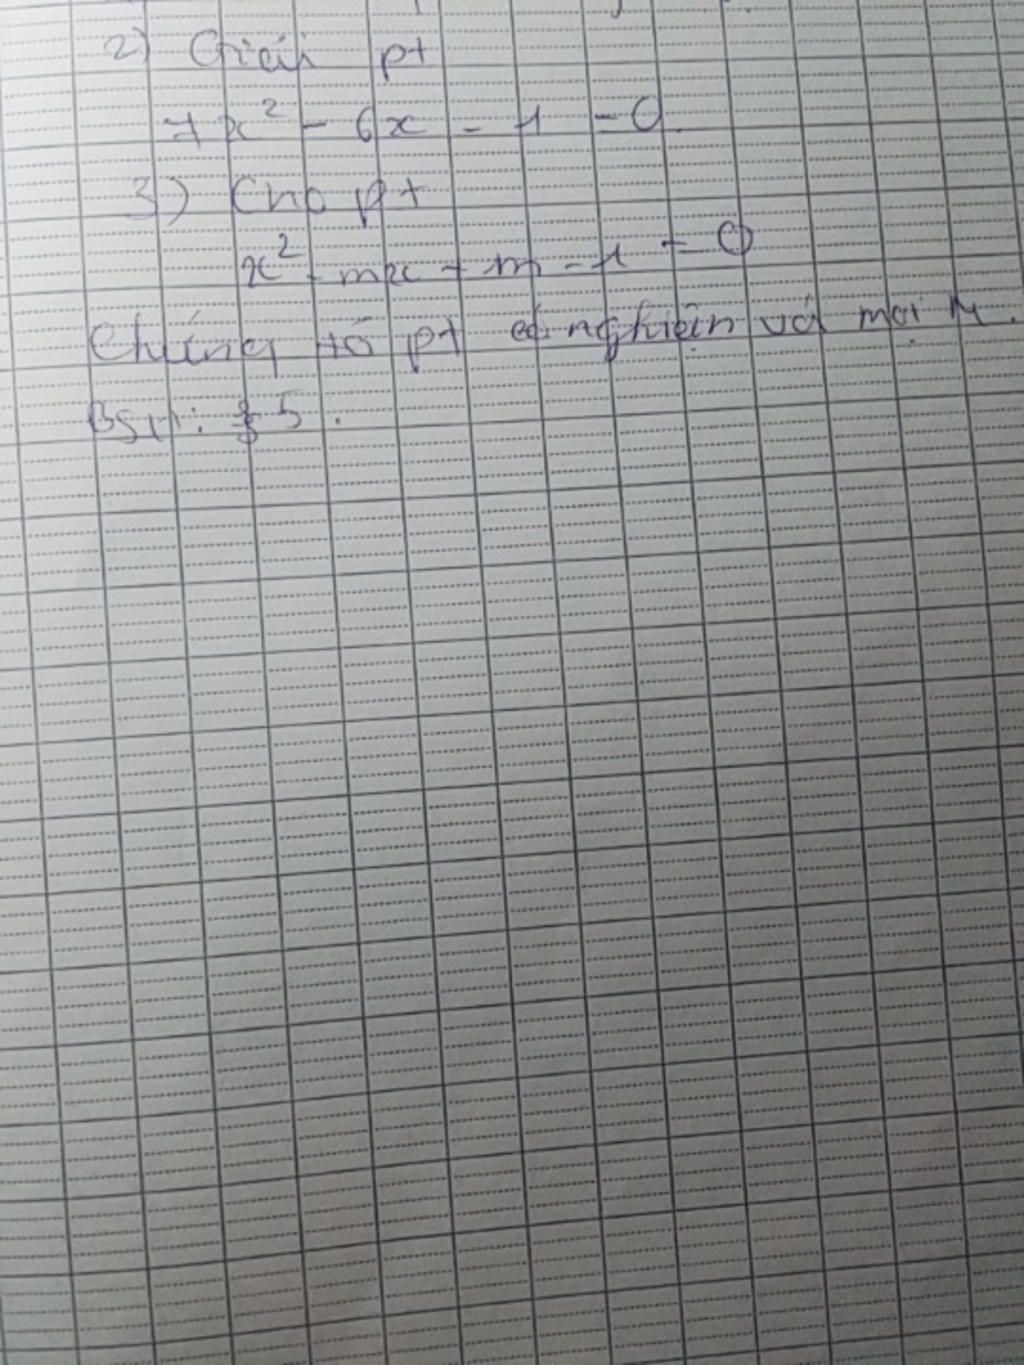 2) Giải pt
7x² - 6x - 1 = 0
3) Cho pt
x² - mx + m - 1 = 0
Chứng tỏ pt có nghiệm với mọi M.
5.